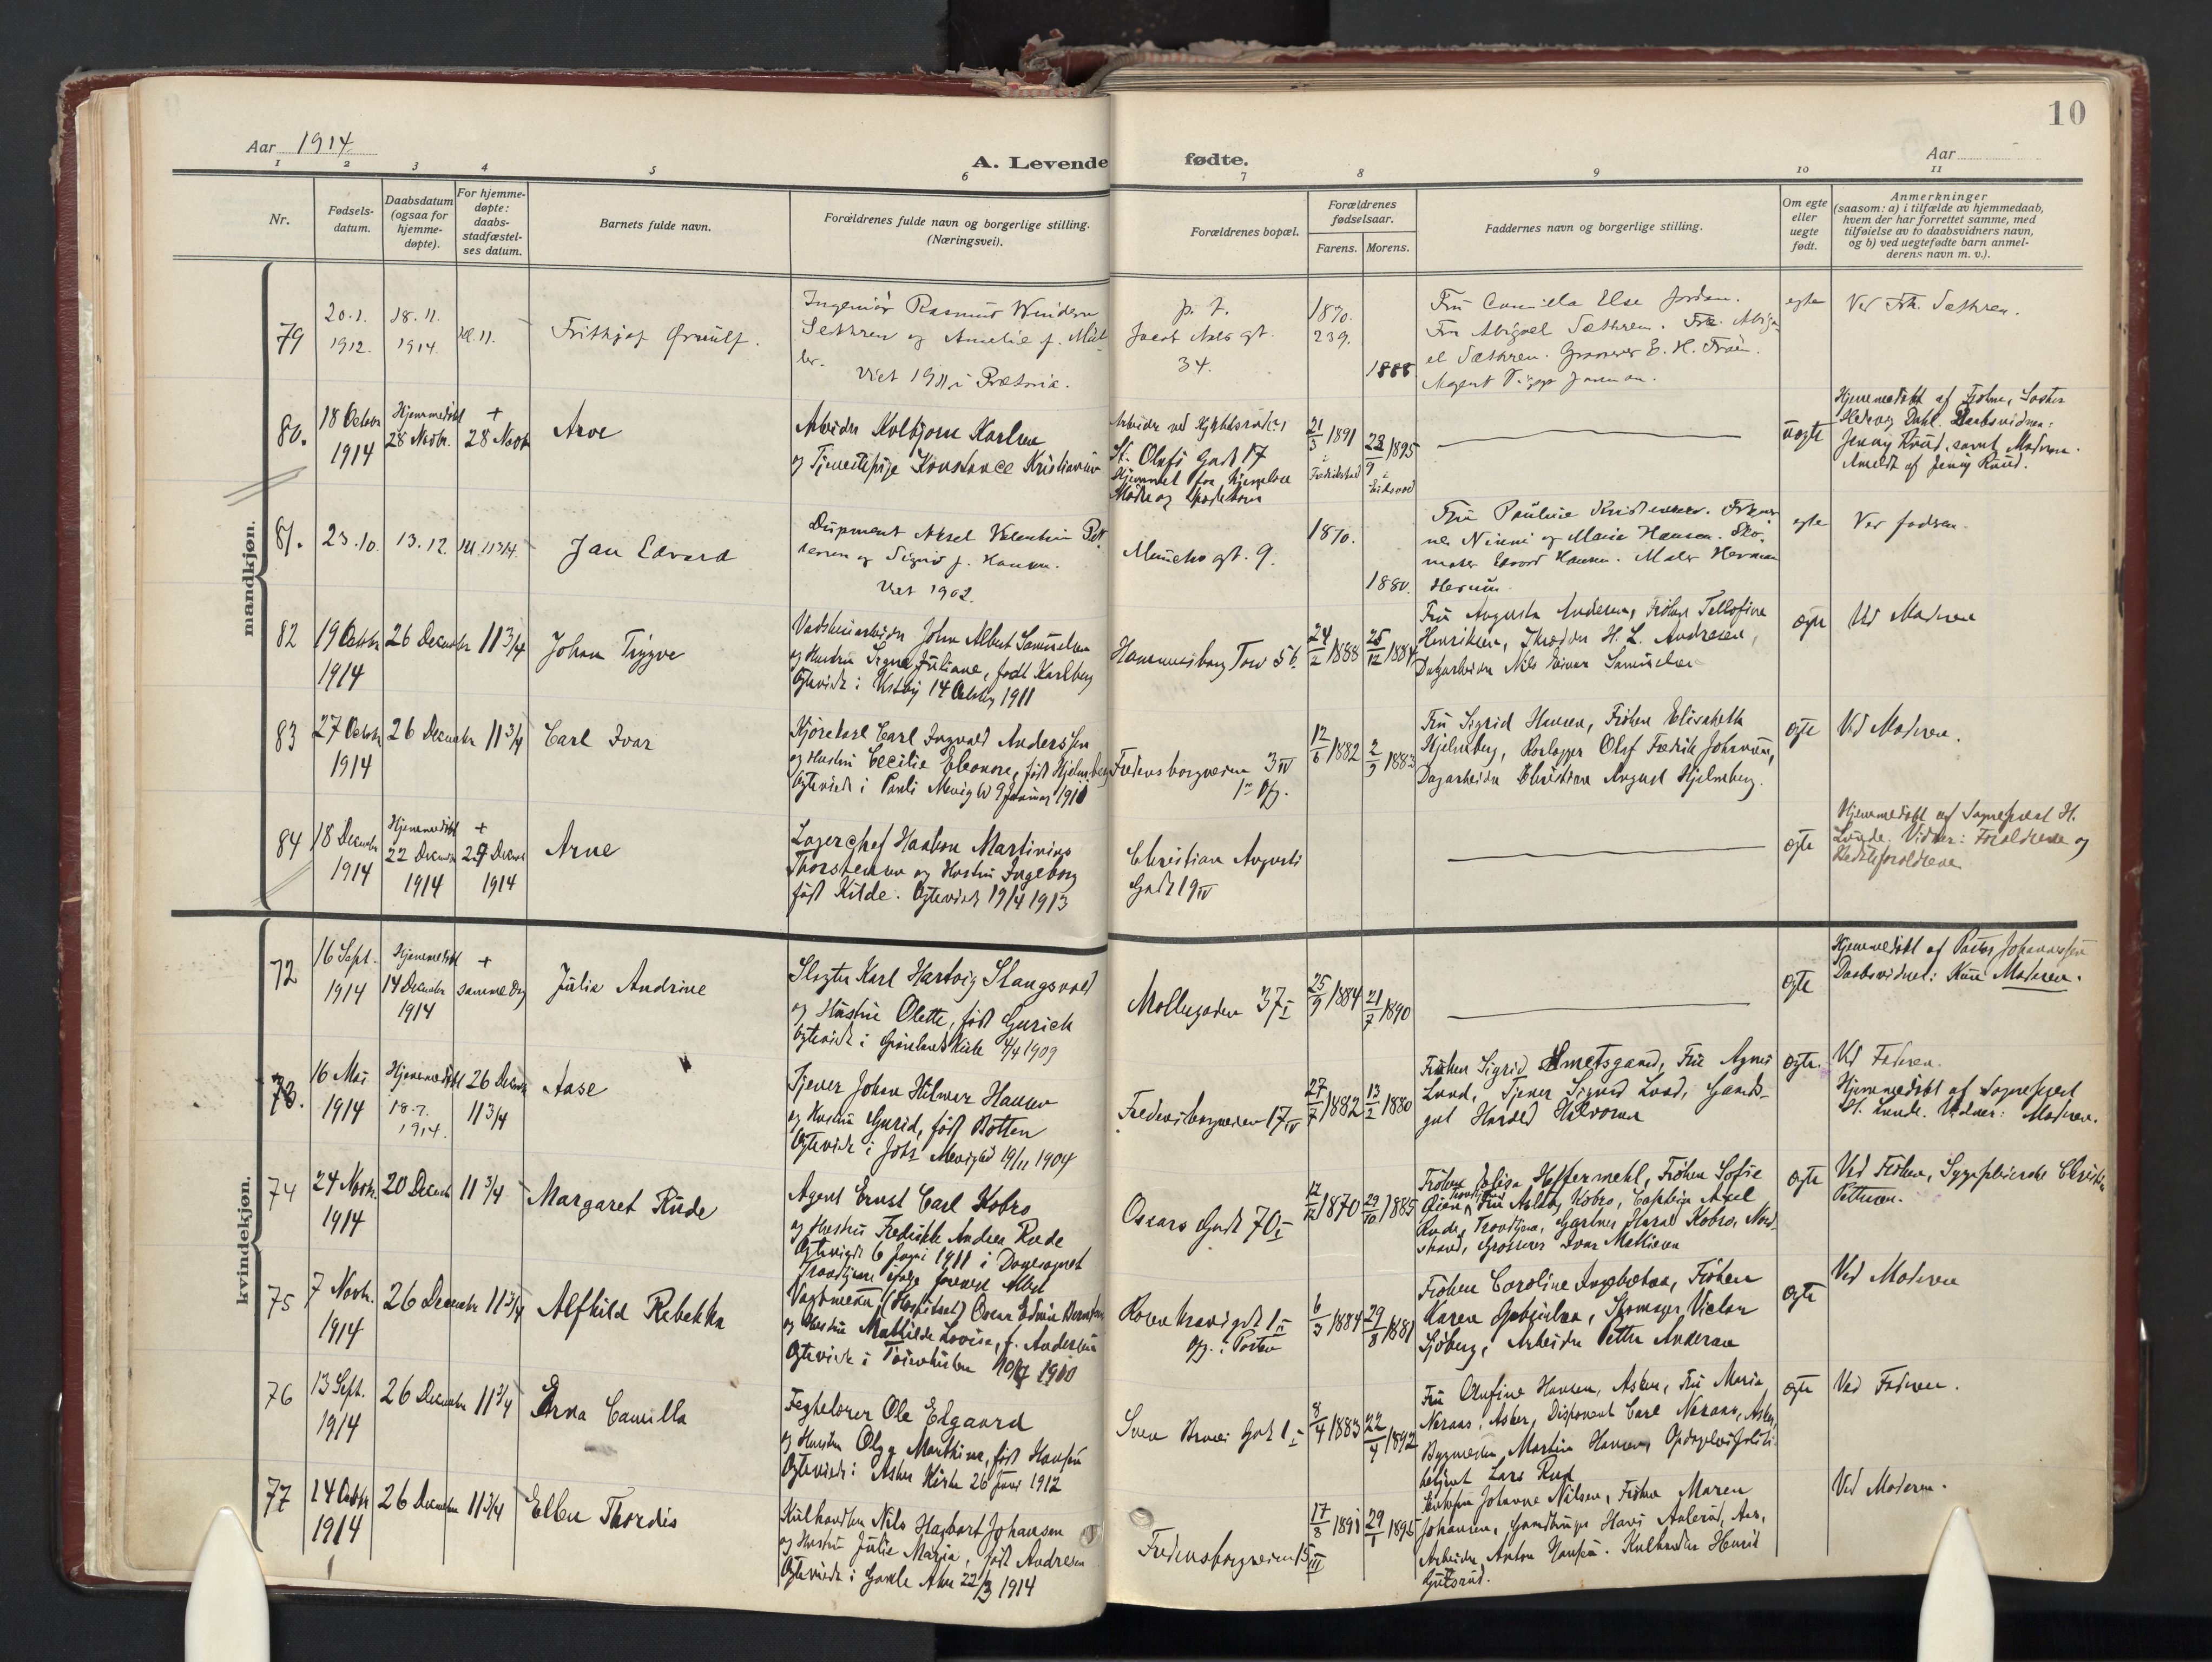 10
Aar 1914
A. Levende fødte.
Aar
1 2 3 4 5 6 7 8 9 10 11
Nr.
Fødsels-
datum.
Daabsdatum
(ogsaa for
hjemme-
døpte).
For hjemme-
døpte:
daabs-
stadfæstel-
ses datum.
Barnets fulde navn.
Forældrenes fulde navn og borgerlige stilling.
(Næringsvei).
Forældrenes bopæl.
Forældrenes
fødselsaar.
Farens. Morens.
Faddernes navn og borgerlige stilling.
Om egte
eller
uegte
født.
Anmerkninger
(saasom: a) i tilfælde av hjemmedaab,
hvem der har forrettet samme, med
tilføielse av to daabsvidners navn,
og b) ved uegtefødte barn anmel-
derens navn m. v.).
mandkjøn.
79
20.1.
1912.
18.11.
1914
Frithjof Ørnulf.
Ingeniør Rasmus
Sethren og Amelie f. Møl
ler.
Viet 1911 i Pretoria.
p. t.
Jacob Aals gt.
34.
1870.
239.
1888
Fru Camilla Else
Fru Abigael Sæthren. Frk. Abiga
el Sæthren. Grosserer E. H.
Agent
egte
Ved Frk. Sæthren.
80.
18 Octobr
1914
Hjemmedøbt
28 Novbr.
+
28 Novbr
Arve
Arbeider Kolbjørn Karlsen
og Tjenestepige Konstance Kristiansen
Arbeider ved
St. Olafs Gade 17
Hjemmet for hjemløse
Mødre og Spædebørn
21/3 1891
i
Fredrikstad
23/9 1895
i
Eidsvold
uegte
Hjemmedøbt af Frøken, Søster
Hedevig Dahl. Daabsvidner:
Jenny Ruud, samt Moderen.
Anmeldt af Jenny Ruud.
81.
23.10.
13.12.
Jan Edvard
Disponent Aksel Valentin Pet
tersen og Sigrid f. Hansen.
Viet 1902.
Munchs gt. 9.
1870.
1880.
Fru Pauline Kristensen. Frøkner
ne Ninni og Marie Hansen. Sko-
maker Edvard Hansen. Maler Herman
egte
Ved faderen.
82
19 Octobr
1914
26 December
11 3/4
Johan Trygve
Vadskeriarbeider John Albert Samuelsen
og Hustru Signe Juliane, født Karlberg
Ægteviede i Vestby 14 October 1911
Hammersborg Torv 5 b
24/2 1888
25/12 1884
Fru Augusta Andersen, Frøken Tellofine
Henriksen, Skrædder H. L. Andresen,
Dagarbeider Nils Einar Samuelsen
ægte
Ved Moderen
83
27 Octobr
1914
26 December
11 3/4
Carl Ivar
Kjørekarl Carl Ingvald Anderssen
og Hustru Cecilie Eleonore, født Hjelmberg
Ægteviede i Pauli Menighed 9 Januar 1910
Fredensborgveien 3 IV
1ste Opg.
12/6 1882
2/9 1883
Fru Sigrid Hansen, Frøken Elisabeth
Hjelmberg, Rørlægger Olaf Fredrik Johansen,
Dagarbeider Christian August Hjelmberg.
ægte
Ved Moderen.
84
18 December
1914
Hjemmedøbt
22 December
1914
+
29 Decembr
1914
Arne
Lagerchef Haakon Martinius
Thorstensen og Hustru Ingeborg
født Kilde. Ægteviet 19/4 1913
Christian Augusts
Gade 19 IV
ægte
Hjemmedøbt af Sognepræst H.
Lunde. Vidner: Forældrene og
Bedsteforældrene
kvindekjøn.
72
16 Sept.
1914
Hjemmedøbt
14 December
1914
+
samme Dag
Julie Andrine
Slagter Karl Hartvig Stangsvold
og Hustru Olette, født Gurich
Ægteviede i Grønlands Kirke 4/4 1909
Møllegaden 37 I
25/9 1884
21/7 1890
ægte
Hjemmedøbt af Pastor Johannessen
Daabsvidnet: Kun Moderen.
73.
16 Mai
1914
Hjemmedøbt
18.7.
1914.
26 Decbr
11 3/4
Aase
Tjener Johan Hilmer Hansen
og Hustru Gurid, født Botten
Ægteviede i Johs Menighed 19/11 1904
Fredensborgveien 17 IV
27/7 1882
13/2 1880
Frøken Sigrid Smetsgaard, Fru Agnes
Lund, Tjener Sigurd Lund, Gaards-
gut Harald Halvorsen
ægte.
Ved Faderen.
Hjemmedøbt af Sognepræst
H. Lunde. Vidner: Moderen.
74
24 Novbr.
1914
20 Decembr
11 3/4
Margaret Rude
Agent Ernst Carl Kobro
og Hustru Fredrikke Andrea Rude
Ægteviede 6 Juni 1911 i Domsognet
Trondhjem ifølge forevist Attest
Oscars Gade 70 I
12/12 1870
29/10 1885
Frøken Elisa Heffermehl, Frøken Sofie
Øien, Trondhjem, Fru Aslaug Kobro, Captein Axel
Rude, Trondhjem, Gartner Harald Kobro, Nord-
strand, Grosserer Ivar Mathiesen
ægte
Ved Frøken, Sygepleierske Christine
Pettersen.
75
7 Novbr.
1914
26 December
11 3/4
Alfhild Rebekka
Vagtmand (Hospitalet) Oscar Edvin Berntsen
og Hustru Mathilde Lovise, f. Andersen
Ægteviede i Tøienkirken 10/4 1910
Rosenkrantzgade 1 II
Opg. i Porten
6/3 1884
29/8 1881
Frøken Caroline Ingebretsen, Frøken
Karen Gabrielsen, Skomager Victor
Sjøberg, Arbeider Petter Andersen
ægte
Ved Moderen
76
13 Sept.
1914
26 December
11 3/4
Erna Camilla
Fægtelærer Ole Edgaard
og Hustru Olga Marthine, født Hansen
Ægteviede i Asker Kirke 26 Juni 1912
Sven Bruns Gade 1 I
8/4 1883
22/4 1892
Fru Olufine Hansen, Asker, Fru Maria
Neraas, Asker, Disponent Carl Neraas, Asker,
Bygmester Martin Hansen, Opdagelsespoliti-
betjent Lars Rud
ægte
Ved Faderen.
77
14 Octobr
1914
26 December
11 3/4
Ellen Thordis
Kulhandler Nils Hagbart Johansen
og Hustru Julie Maria, født Andresen
Ægteviede i Gamle Aker 22/3 1914
Fredensborgveien 15 III
17/8 1891
29/1 1895
Johanne Nilsen, Frøken Maren
Johansen, Gaardbruger Hans Aulerud, Aas,
Arbeider Anton Hansen. Kulhandler Henrik
Ved Moderen.